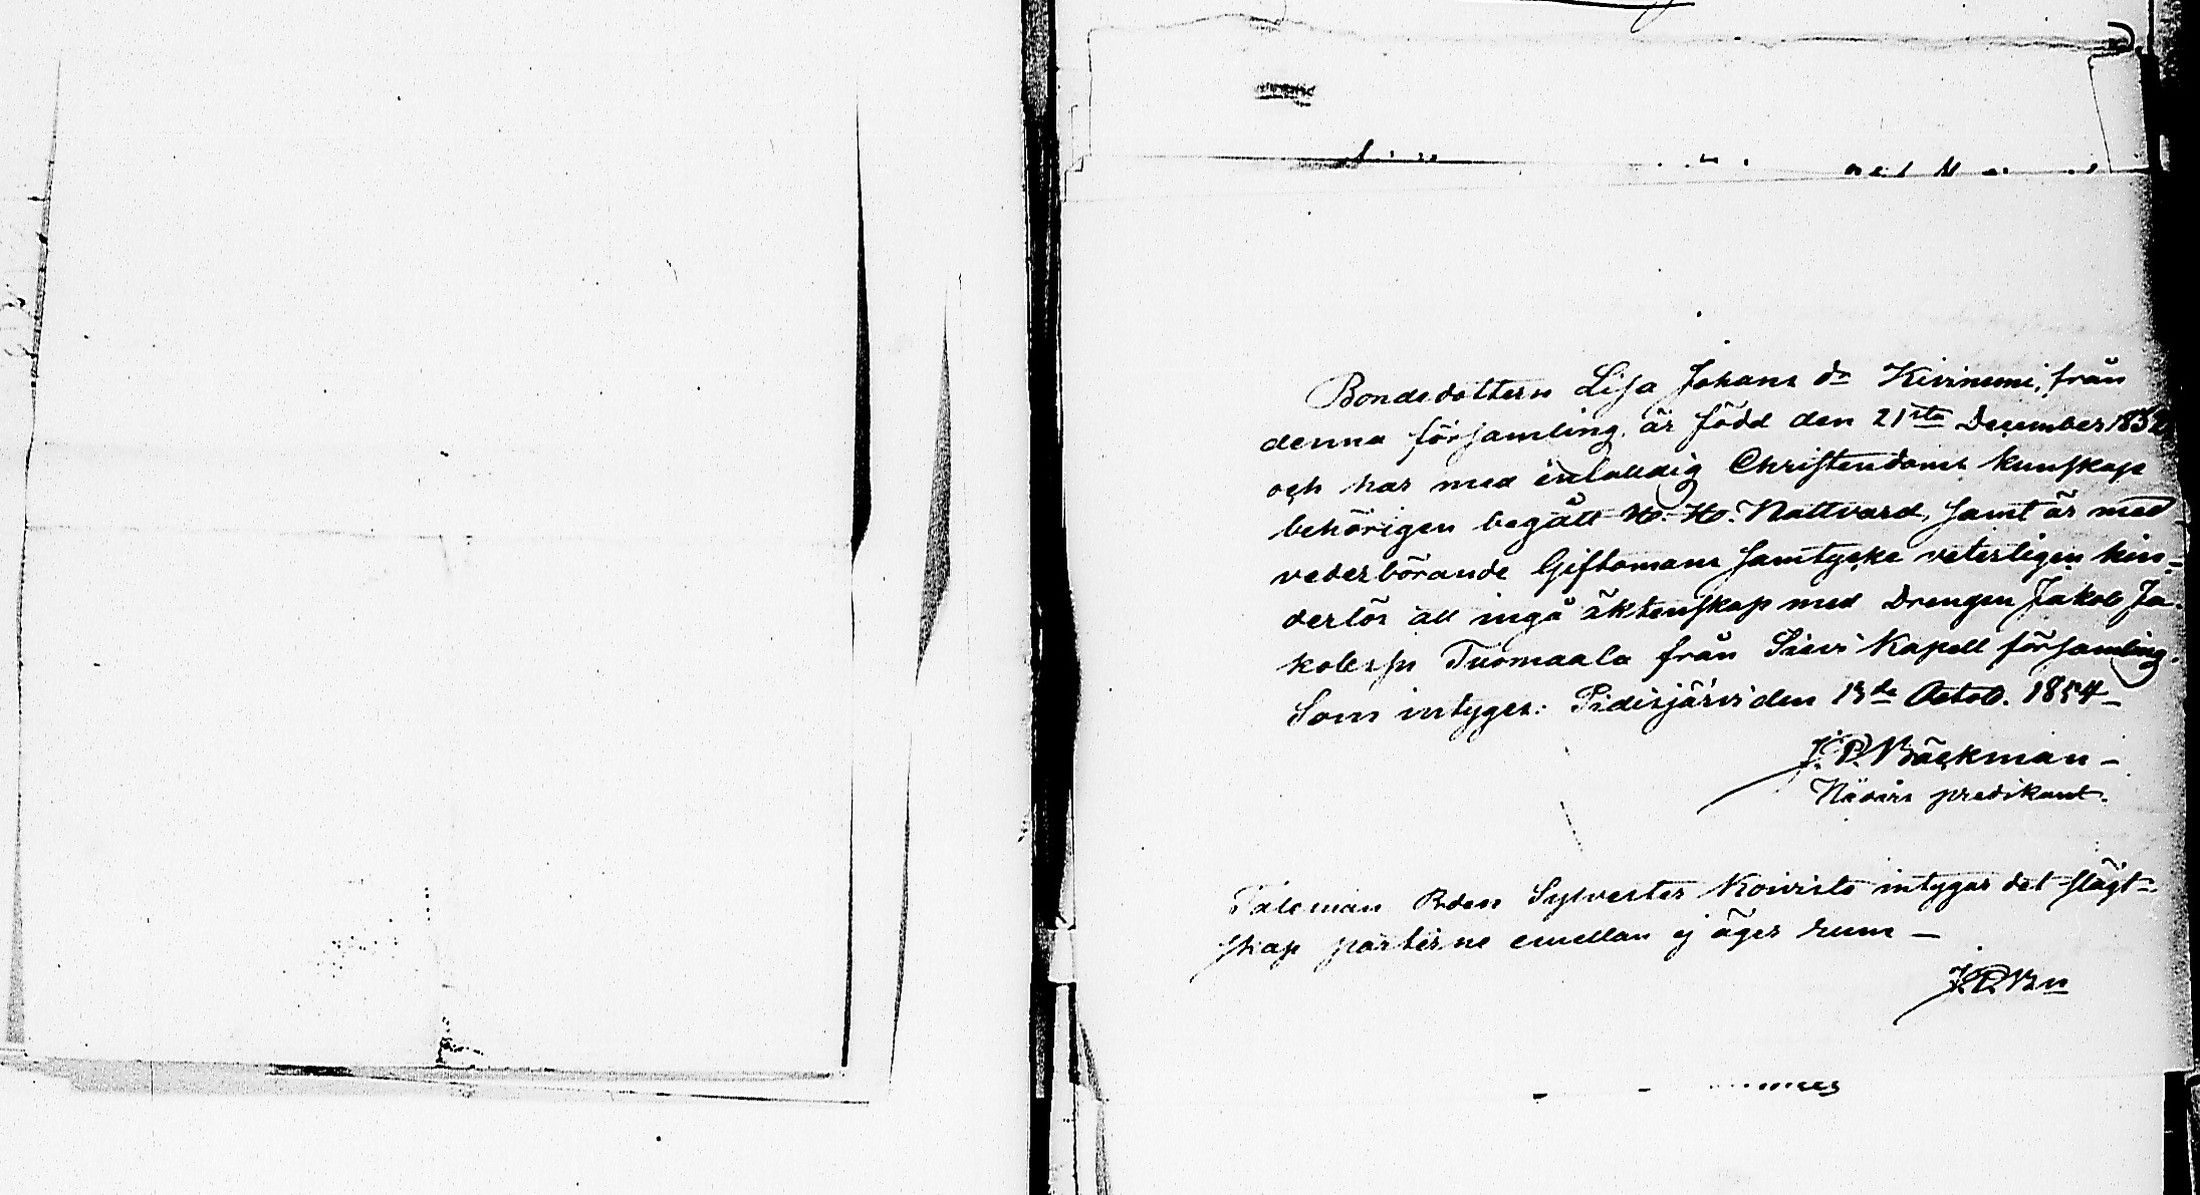 Bondedottern Lisa Johans dr Kiviniemi, från
denna församling, är född den 21sta December 1832
och har med enfalldig Christendoms kunskap
behörigen begått H. H. Nattvard, samt är med
vederbörande Giftomans samtycke veterligen hin=
derlös att ingå äktenskap med Drengen Jakob Ja=
kobsson Tuomaala från Sievi Kapell församling.
Som intygas: Pidisjärvi den 13de Octob. 1854 –
J. P. Bäckman –
Nådårs predikant.
Taleman Bden Sylvester Koivisto intygar det slägt=
skap parterne emellan ej äger rum –
J.P.Bn